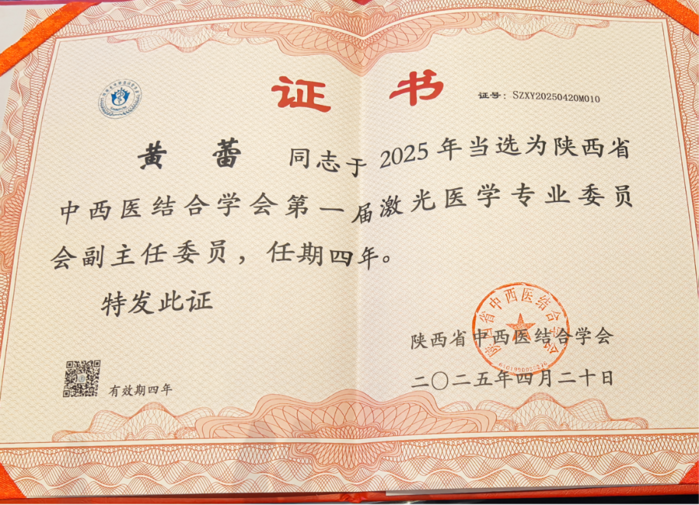 证书
证号：SZXY20250420M010
黄蕾 同志于 2025 年当选为陕西省
中西医结合学会第一届激光医学专业委员
会副主任委员，任期四年。
特发此证
陕西省中西医结合学会
二〇二五年四月二十日
有效期四年
陕西省中西医结合学会